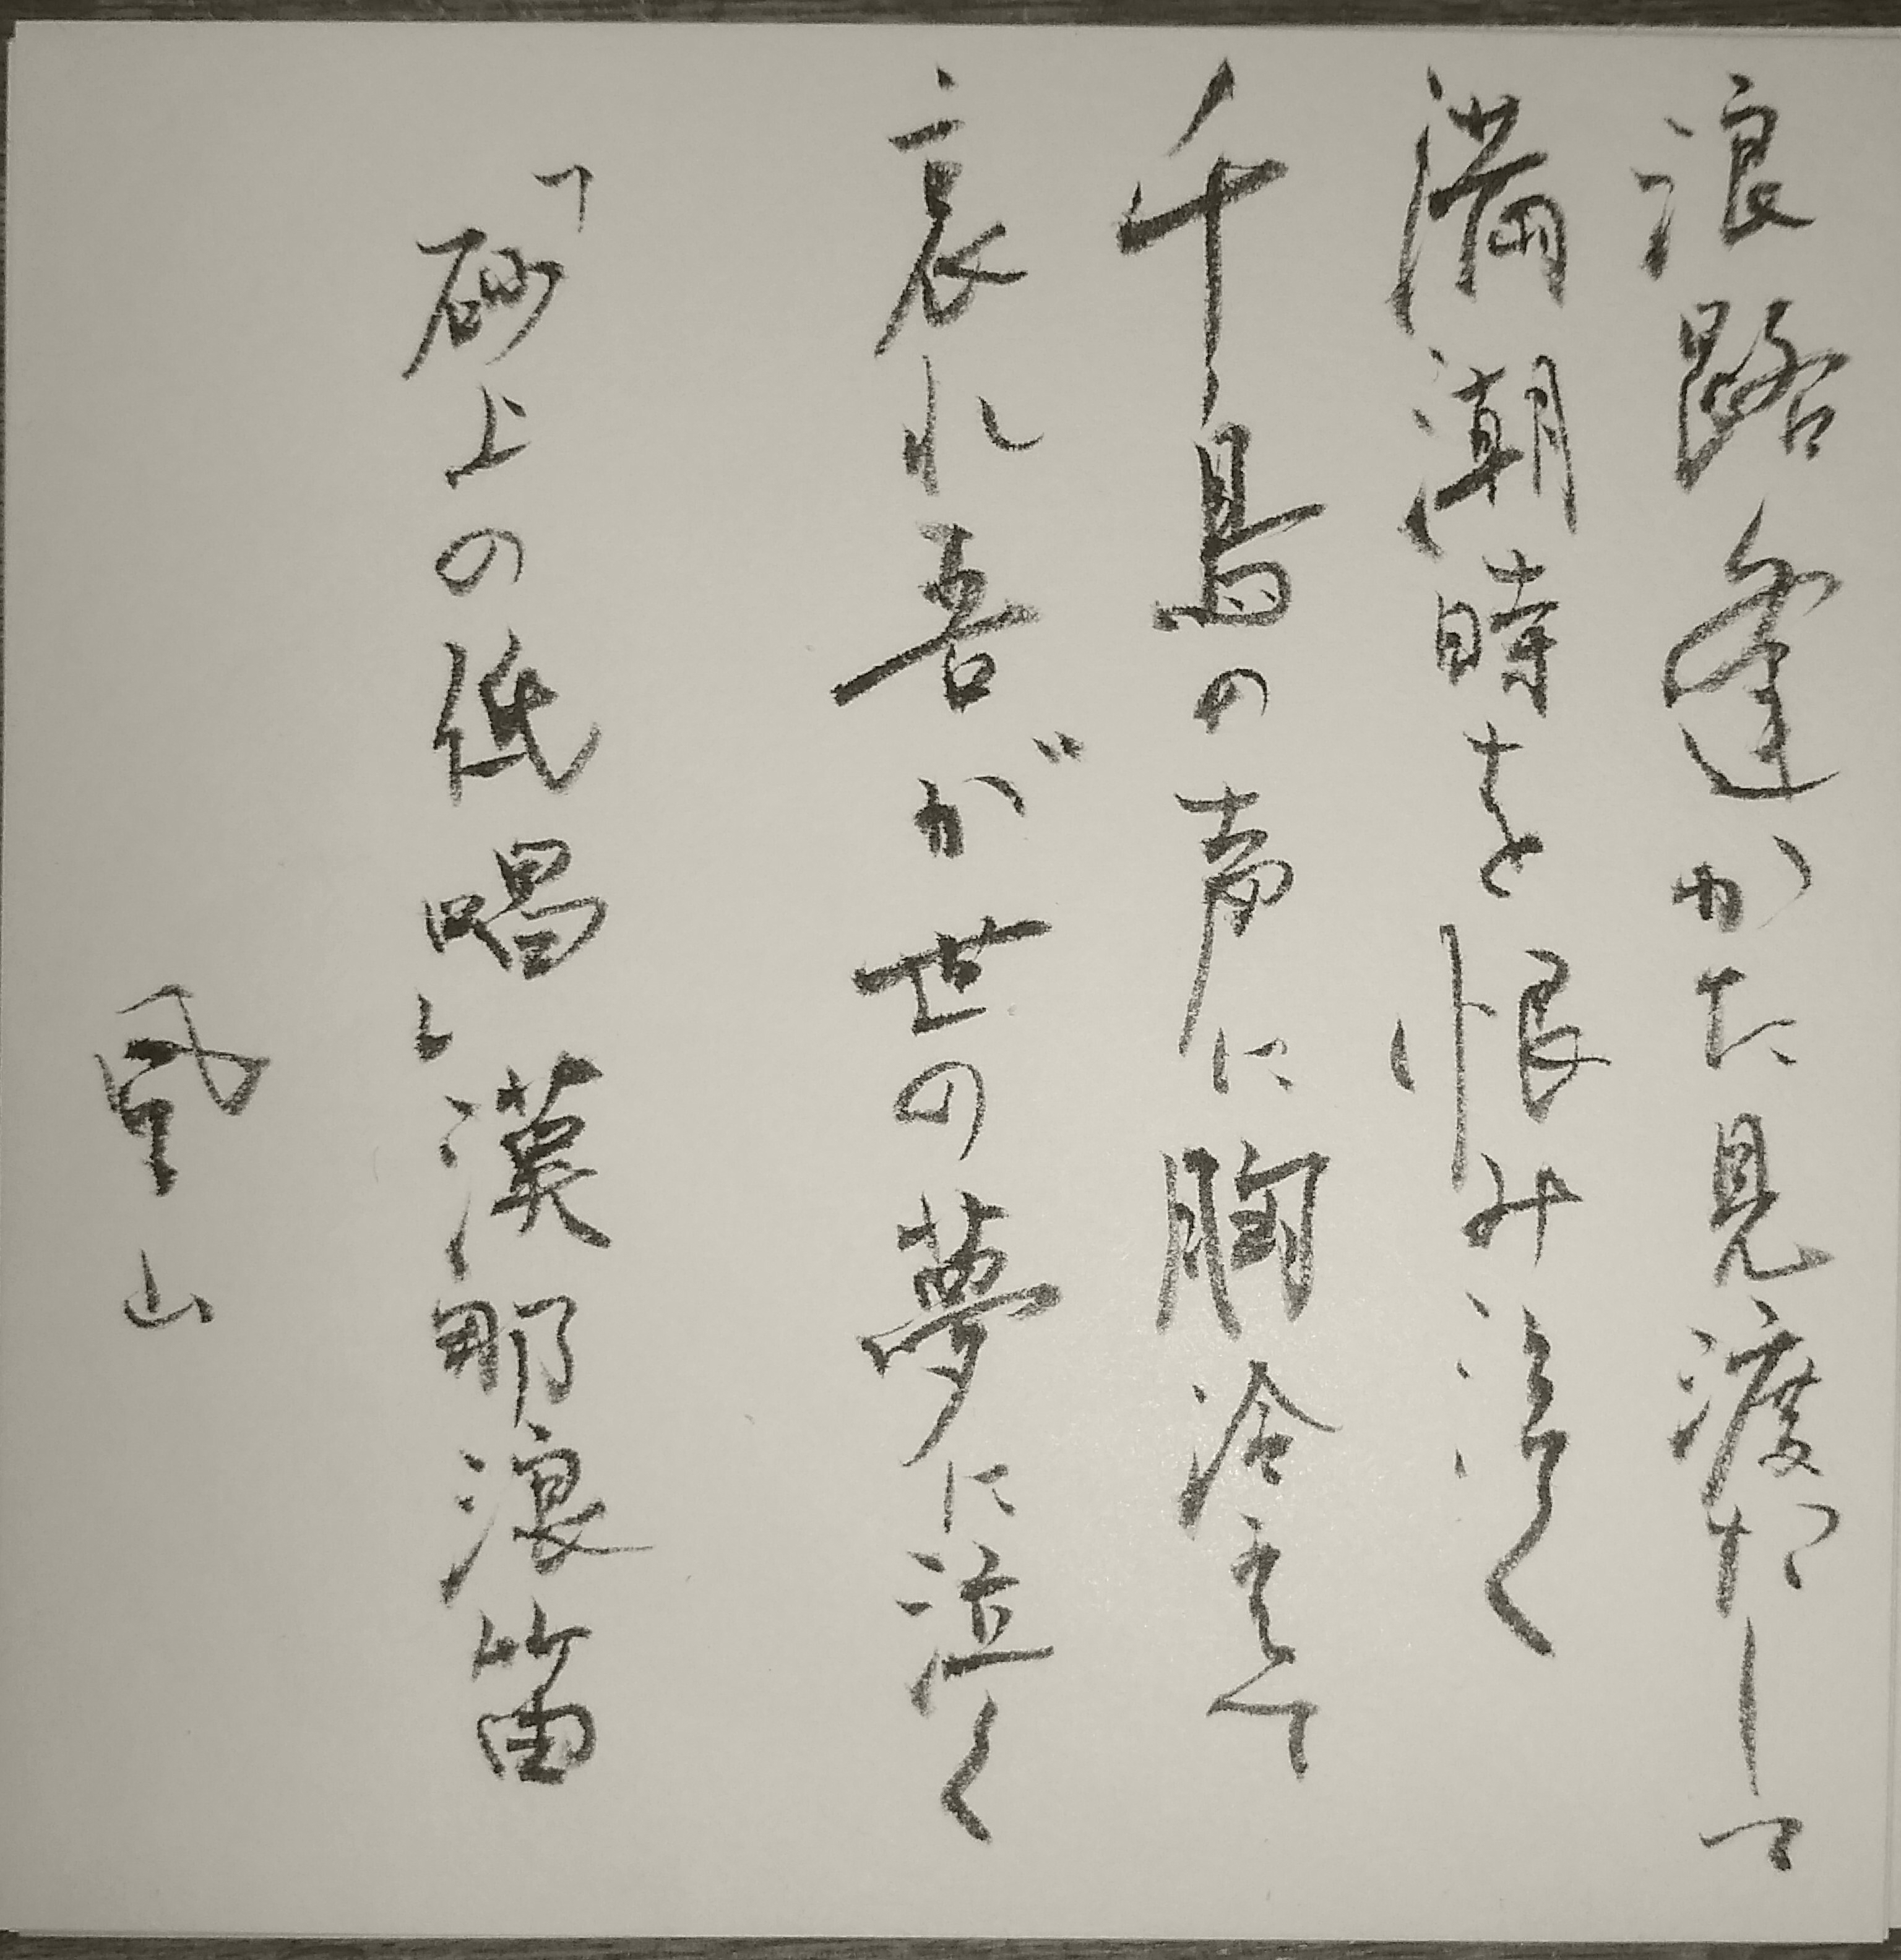 浪路逢かた見渡たして
満潮時を恨み泣く
千鳥の声に胸冷えて
哀れ吾が世の夢に泣く
「砂上の低唱」漢那浪笛
山